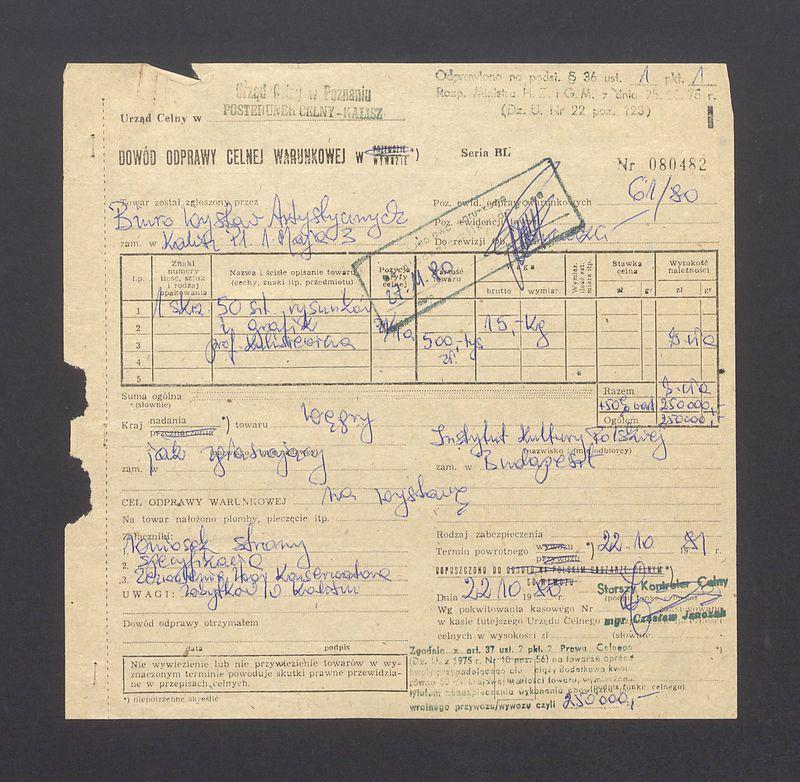 Odprawiono na podst. § 36 ust. 1 pkt. 1
Rozp. Ministra H. Z. i G. M. z dnia 75 r.
(Dz. U. Nr 22 poz. 123)
Urząd Celny w Poznaniu
POSTERUNEK CELNY-KALISZ
Urząd Celny w
DOWÓD ODPRAWY CELNEJ WARUNKOWEJ w PRZYWOZIE WYWOZIE *)
Seria BL
Nr 080482
Towar został zgłoszony przez
Biuro Wystaw Artystycznych
zam. w Kalisz Pl. 1 Maja 3
Poz. ewid. odpraw warunkowych 61/80
Poz. ewidencji
Do rewizji
27.11.80
Lp.
Znaki numery ilość, sztuk i rodzaj opakowania
Nazwa i ścisłe opisanie towaru (cechy, znaki itp. przedmiotu)
Pozycja celnej
Wartość towaru
brutto
wymiar.
Stawka celna
zł gr
Wysokość należności
zł gr
1 1 skrz. 50 szt. rysunków
2 i grafik 15,- kg
3 prof. 500,-tys
zł.
4
5
Suma ogólna
(słownie)
Razem
+50% wart 250000,-
Ogółem 250000,-
Kraj nadania przeznaczenia *) towaru Węgry
Instytut Kultury Polskiej
(nazwisko i imię odbiorcy)
jak zgłaszający
zam. w
zam. w Budapeszt
CEL ODPRAWY WARUNKOWEJ na wystawę
Na towar nałożono plomby, pieczęcie itp.
Załączniki:
Wniosek strony
2. specyfikacja
3. Zezwolenie Woj. Konserwatora
UWAGI: Zabytków w Kaliszu
Rodzaj zabezpieczenia
Termin powrotnego wywozu przywozu *) 22.10 1981 r.
Dnia 22 10 1980
Starszy Kontroler Celny
mgr Czesław Janczak
Wg pokwitowania kasowego Nr
w kasie tutejszego Urzędu Celnego
celnych w wysokości zł
(słownie
Dowód odprawy otrzymałem
data podpis
Nie wywiezienie lub nie przywiezienie towarów w wy-
znaczonym terminie powoduje skutki prawne przewidzia-
ne w przepisach celnych.
*) niepotrzebne skreślić
Zgodnie z art. 37 ust. 2 pkt. 2 Prawa Celnego
(Dz. U. z 1975 r. Nr 10 poz. 56) na towarze oprócz
kwoty przypadającego cła
tytułem zabezpieczenia wykonania obowiązku
wrotnego przywozu/wywozu czyli 250000,-